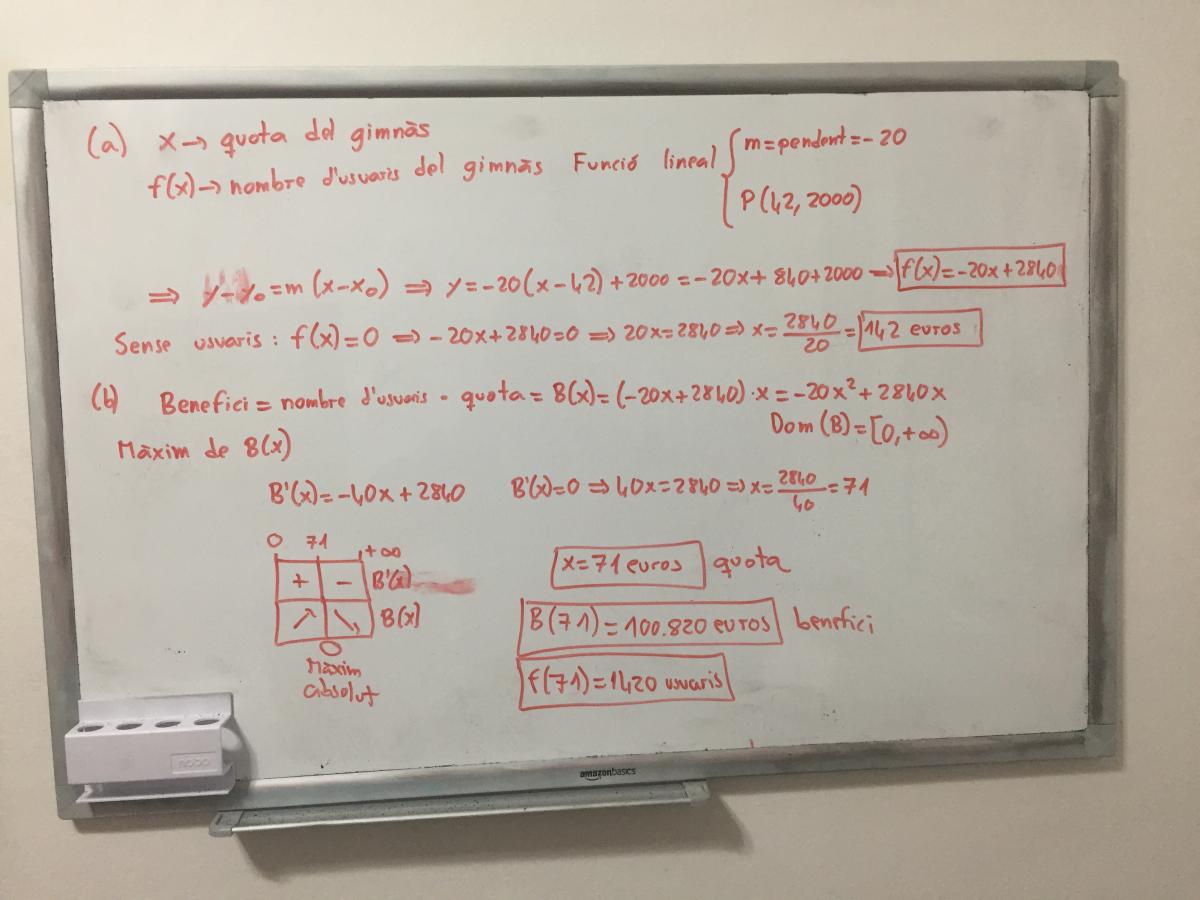 (a) x→ quota del gimnàs
f(x)→ nombre d'usuaris del gimnàs Funció lineal { m=pendent=-20
P(42, 2000)
⇒ y-y₀=m (x-x₀) ⇒ y=-20(x-42)+2000=-20x+840+2000 → f(x)=-20x+2840
Sense usuaris: f(x)=0 ⇒ -20x+2840=0 ⇒ 20x=2840 ⇒ x=2840/20=142 euros
(b) Benefici = nombre d'usuaris · quota = B(x)=(-20x+2840)·x=-20x²+2840x
Dom(B)=[0,+∞)
Màxim de B(x)
B'(x)=-40x+2840 B'(x)=0 ⇒ 40x=2840 ⇒ x=2840/40=71
0 71 +∞
+ - B'(x)
↗ ↘ B(x)
0
Màxim
absolut
x=71 euros quota
B(71)=100.820 euros benefici
f(71)=1420 usuaris
nobo
amazonbasics